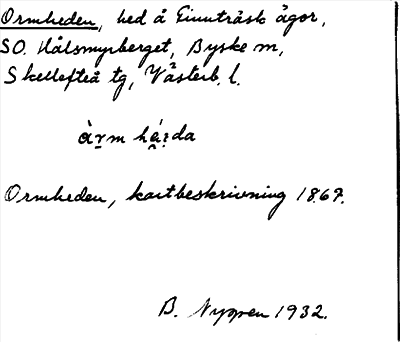 Ormheden, hed å Finnträsk ägor,
SO. Hålsmyrberget, Byske sn,
Skellefteå tg, Västerb. l.
Ormheden, kartbeskrivning 1867.
B. Nygren 1932.